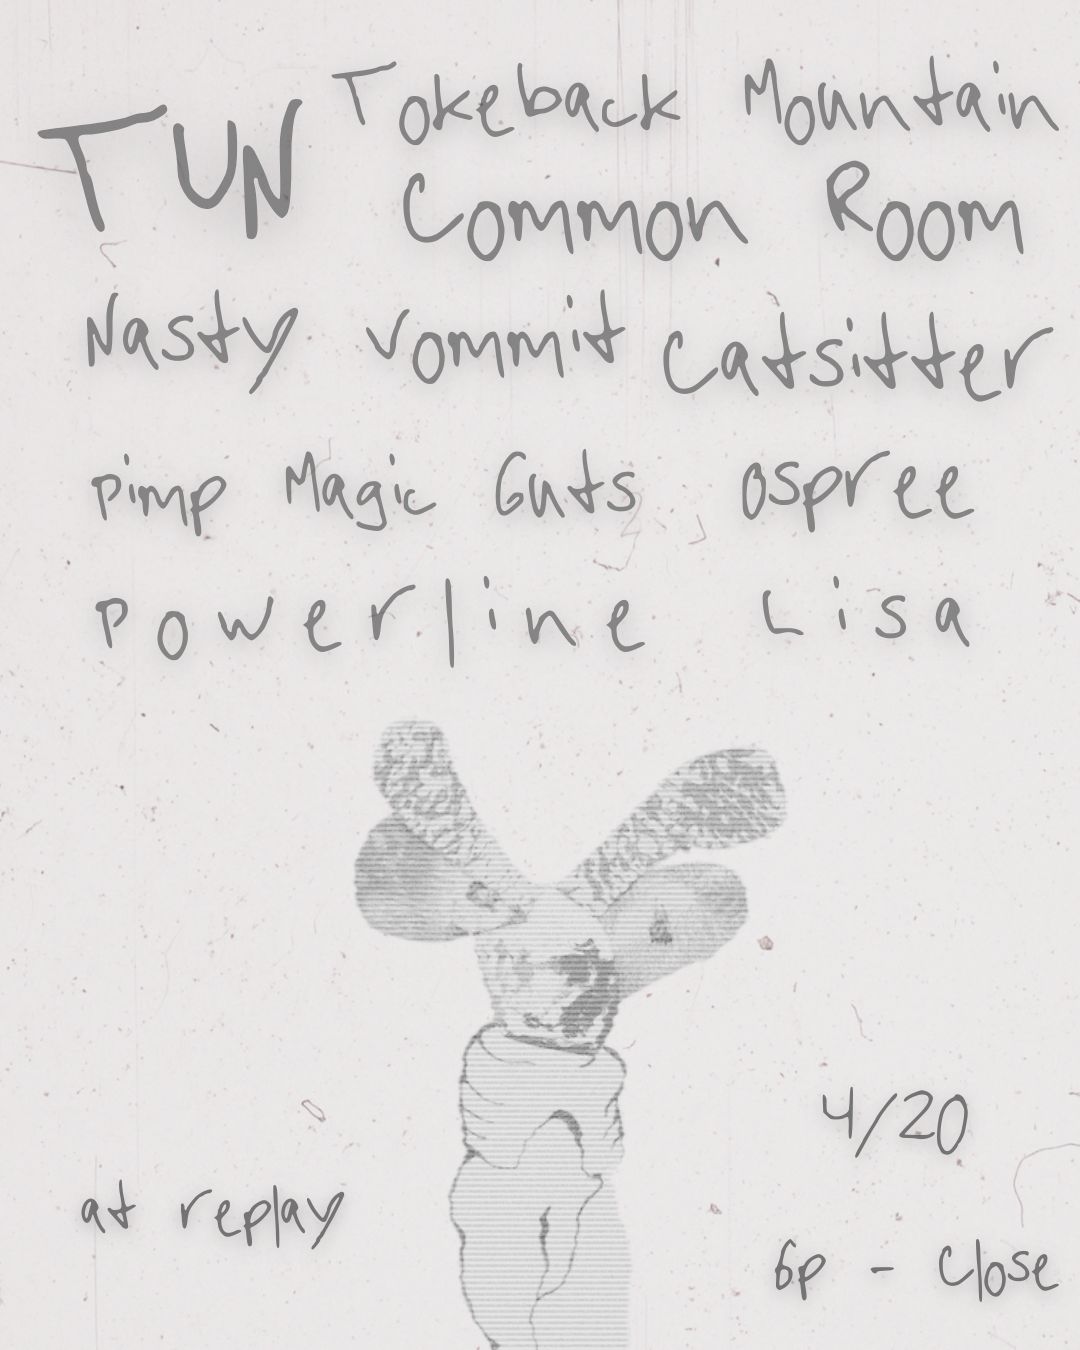 TUN Tokeback Mountain
Common Room
Nasty Vommit Catsitter
Pimp Magic Guts Ospree
Powerline Lisa
4/20
at replay
6p - Close